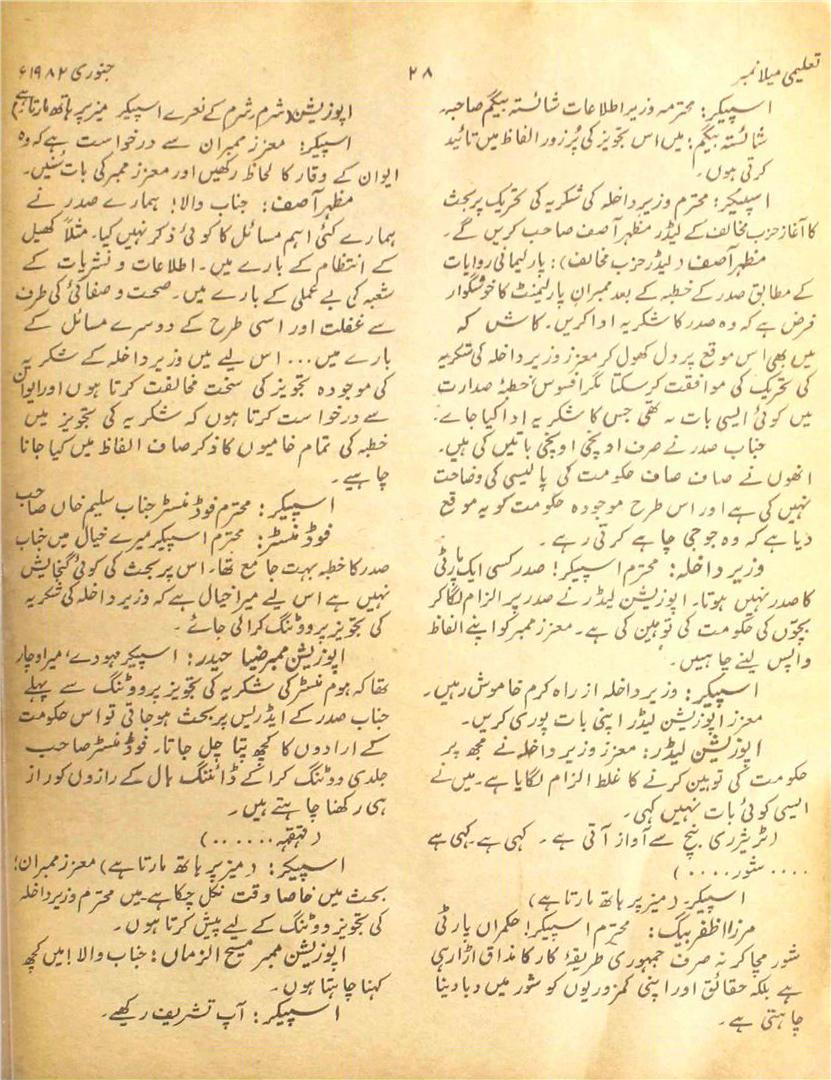 تعلیمی میلا نمبر
۲۸
جنوری ۱۹۸۲ء
اسپیکر: محترمہ وزیر اطلاعات شائستہ بیگم صاحبہ۔
شائستہ بیگم: میں اس تجویز کی پُر زور الفاظ میں تائید
کرتی ہوں۔
اسپیکر: محترم وزیر داخلہ کی شکریہ کی تحریک پر بحث
کا آغاز حزب مخالف کے لیڈر مظہر آصف صاحب کریں گے۔
مظہر آصف (لیڈر حزب مخالف): پارلیمانی روایات
کے مطابق صدر کے خطبہ کے بعد ممبران پارلیمنٹ کا خوشگوار
فرض ہے کہ وہ صدر کا شکریہ ادا کریں۔ کاش کہ
میں بھی اس موقع پر دل کھول کر معزز وزیر داخلہ کی شکریہ
کی تحریک کی موافقت کر سکتا مگر افسوس خطبۂ صدارت
میں کوئی ایسی بات نہ تھی جس کا شکریہ ادا کیا جائے۔
جناب صدر نے صرف اونچی اونچی باتیں کی ہیں۔
انھوں نے صاف صاف حکومت کی پالیسی کی وضاحت
نہیں کی ہے اور اس طرح موجودہ حکومت کو یہ موقع
دیا ہے کہ وہ جو جی چاہے کرتی رہے۔
وزیر داخلہ: محترم اسپیکر! صدر کسی ایک پارٹی
کا صدر نہیں ہوتا۔ اپوزیشن لیڈر نے صدر پر الزام لگا کر
بچوں کی حکومت کی توہین کی ہے۔ معزز ممبر کو اپنے الفاظ
واپس لینے چاہییں۔
اسپیکر: وزیر داخلہ از راہ کرم خاموش رہیں۔
معزز اپوزیشن لیڈر اپنی بات پوری کریں۔
اپوزیشن لیڈر: معزز وزیر داخلہ نے مجھ پر
حکومت کی توہین کرنے کا غلط الزام لگایا ہے۔ میں نے
ایسی کوئی بات نہیں کہی۔
(ٹریژری بنچ سے آواز آتی ہے۔ کہی ہے۔ کہی ہے
.... شور ....)
اسپیکر۔ (میز پر ہاتھ مارتا ہے)
مرزا ظفر بیگ: محترم اسپیکر! حکمراں پارٹی
شور مچا کر نہ صرف جمہوری طریقۂ کار کا مذاق اڑا رہی
ہے بلکہ حقائق اور اپنی کمزوریوں کو شور میں دبا دینا
چاہتی ہے۔
اپوزیشن (شرم شرم کے نعرے اسپیکر میز پر ہاتھ مارتا ہے)
اسپیکر: معزز ممبران سے درخواست ہے کہ وہ
ایوان کے وقار کا لحاظ رکھیں اور معزز ممبر کی بات سُنیں۔
مظہر آصف: جناب والا! ہمارے صدر نے
ہمارے کئی اہم مسائل کا کوئی ذکر نہیں کیا۔ مثلاً کھیل
کے انتظام کے بارے میں۔ اطلاعات و نشریات کے
شعبہ کی بے عملی کے بارے میں۔ صحت و صفائی کی طرف
سے غفلت اور اسی طرح کے دوسرے مسائل کے
بارے میں ... اس لیے میں وزیر داخلہ کے شکریہ
کی موجودہ تجویز کی سخت مخالفت کرتا ہوں اور ایوان
سے درخواست کرتا ہوں کہ شکریہ کی تجویز میں
خطبہ کی تمام خامیوں کا ذکر صاف الفاظ میں کیا جانا
چاہیے۔
اسپیکر: محترم فوڈ منسٹر جناب سلیم خاں صاحب
فوڈ منسٹر: محترم اسپیکر میرے خیال میں جناب
صدر کا خطبہ بہت جامع تھا۔ اس پر بحث کی کوئی گنجائش
نہیں ہے اس لیے میرا خیال ہے کہ وزیر داخلہ کی شکریہ
کی تجویز پر ووٹنگ کرالی جائے۔
اپوزیشن ممبر ضیا حیدر: اسپیکر مہودے، میرا وچار
تھا کہ ہوم منسٹر کی شکریہ کی تجویز پر ووٹنگ سے پہلے
جناب صدر کے ایڈریس پر بحث ہو جاتی تو اس حکومت
کے ارادوں کا کچھ پتا چل جاتا۔ فوڈ منسٹر صاحب
جلدی ووٹنگ کرا کے ڈائننگ ہال کے رازوں کو راز
ہی رکھنا چاہتے ہیں۔
(قہقہہ ......)
اسپیکر: (میز پر ہاتھ مارتا ہے) معزز ممبران!
بحث میں خاصا وقت نکل چکا ہے۔ میں محترم وزیر داخلہ
کی تجویز ووٹنگ کے لیے پیش کرتا ہوں۔
اپوزیشن ممبر مسیح الزماں: جناب والا! میں کچھ
کہنا چاہتا ہوں۔
اسپیکر: آپ تشریف رکھیے۔